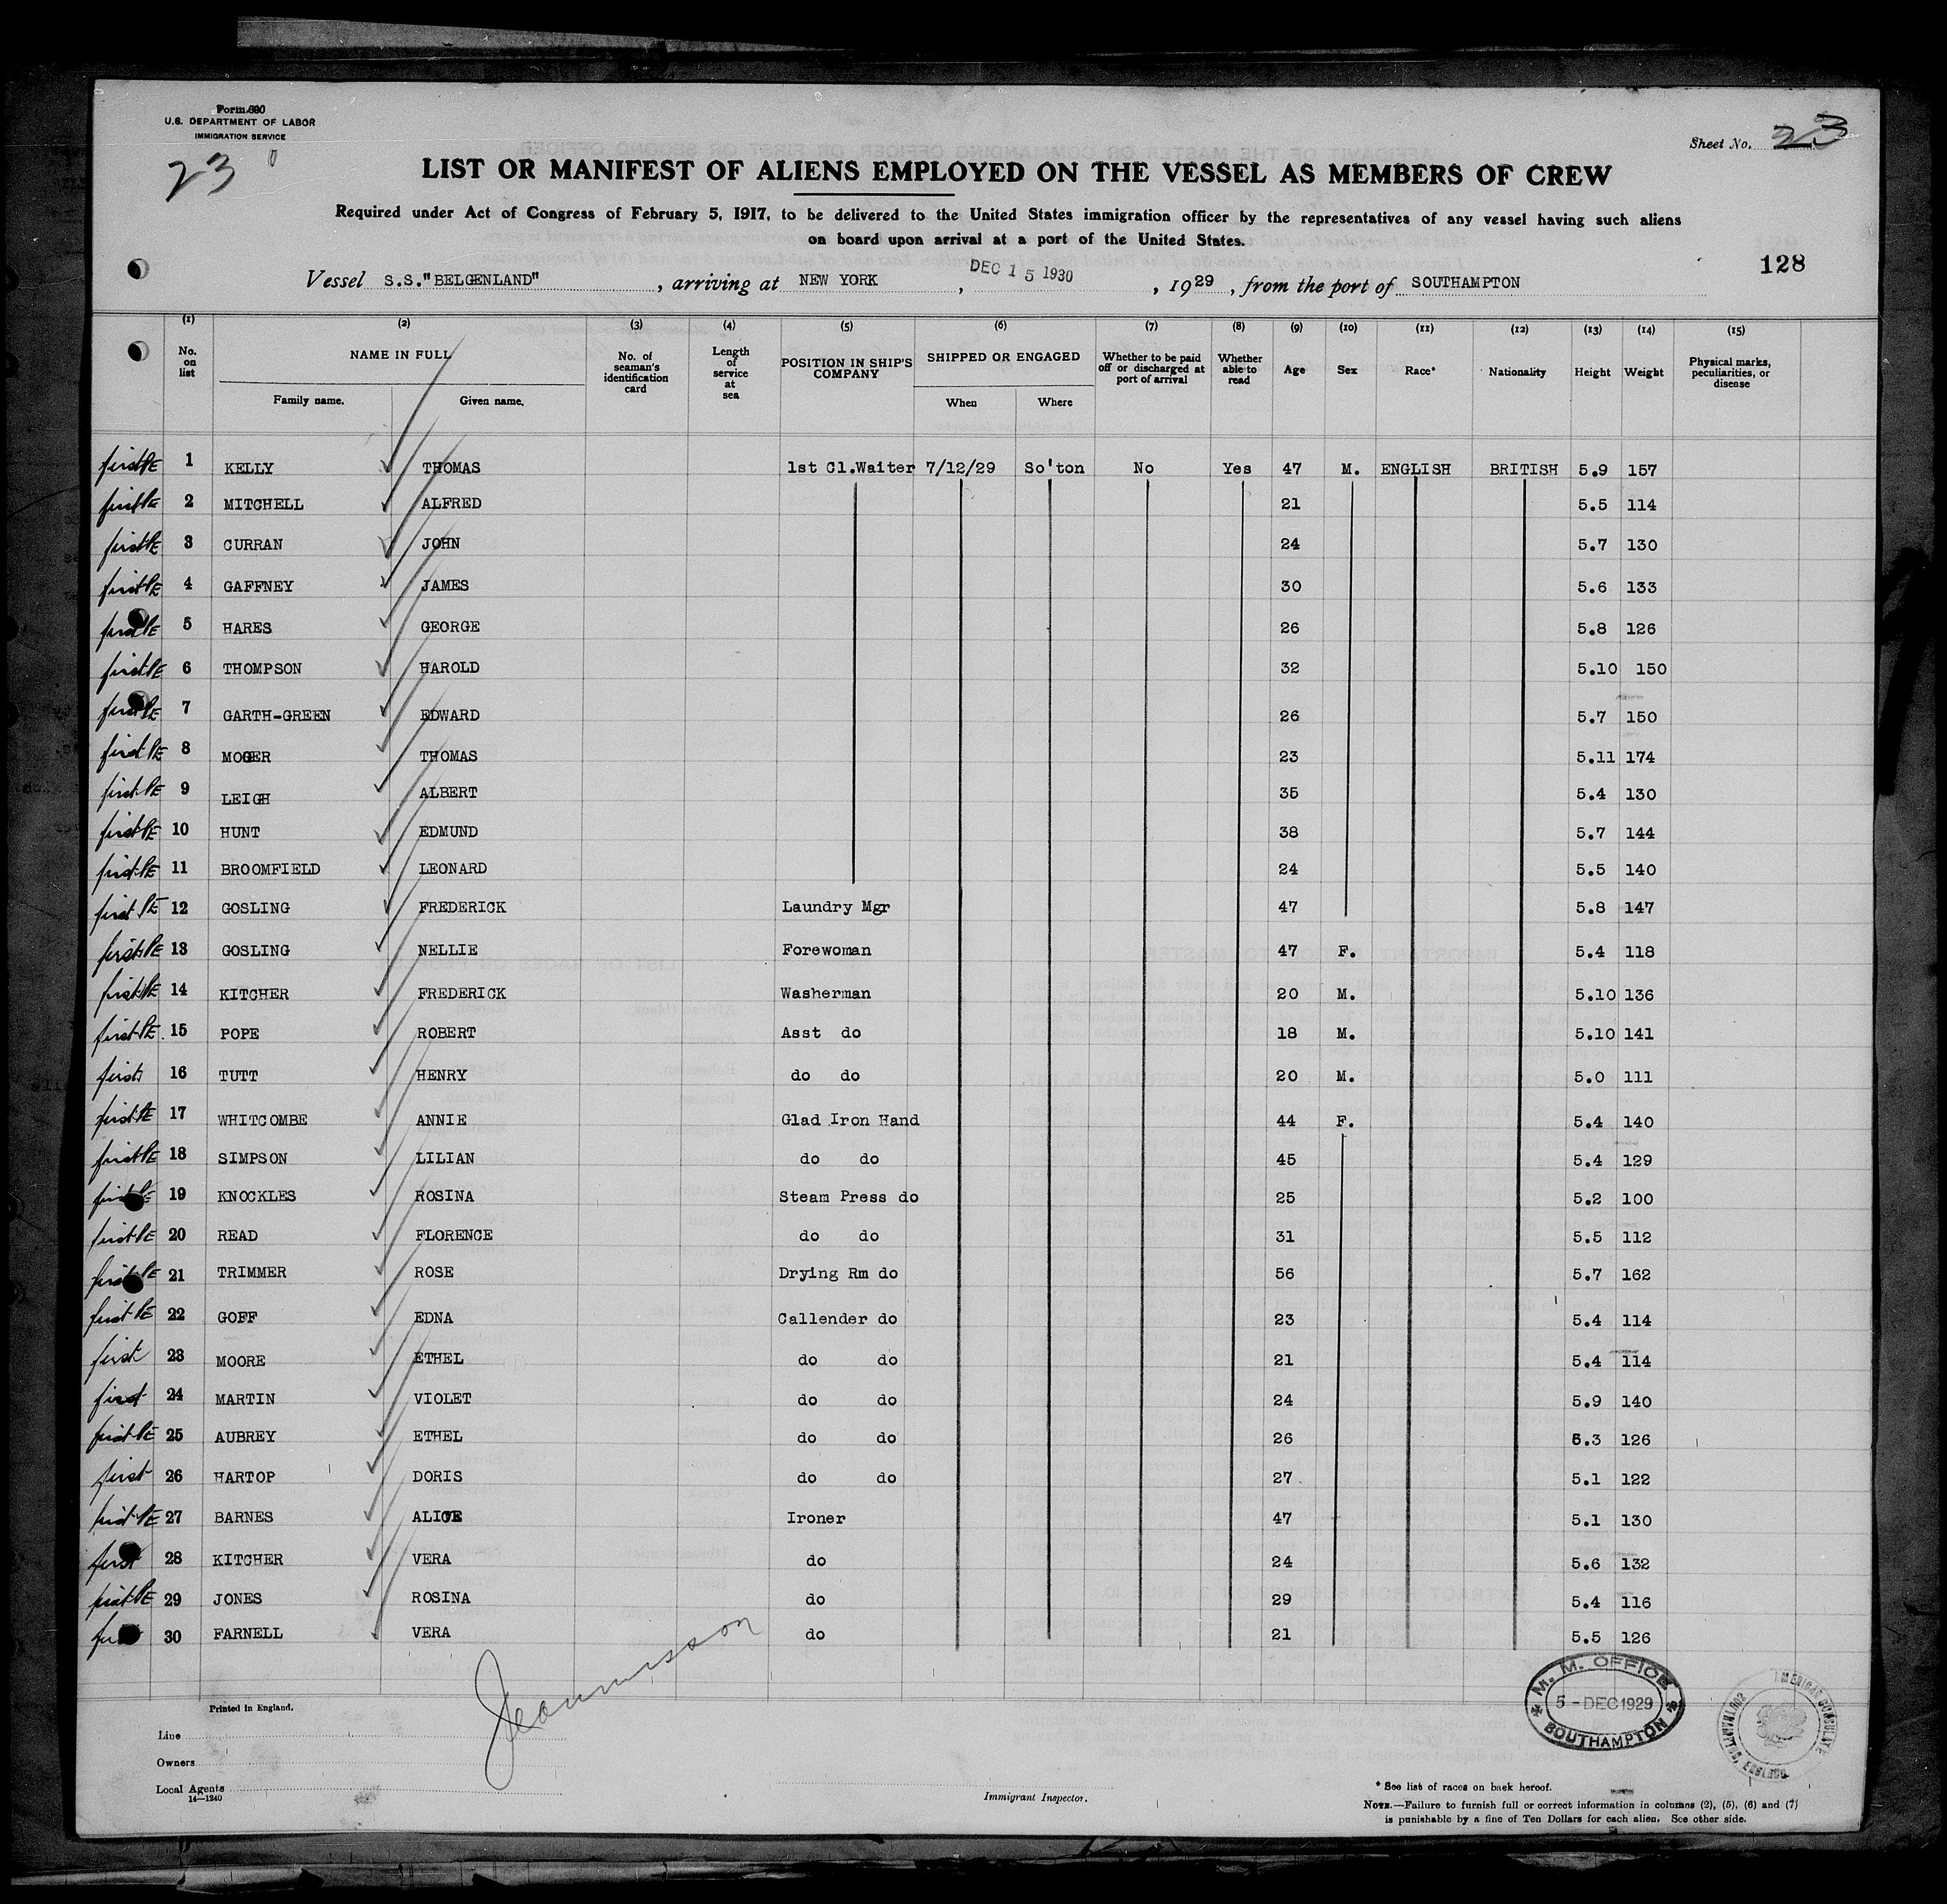 Form 680
U.S. DEPARTMENT OF LABOR
IMMIGRATION SERVICE
23
Sheet No. 23
LIST OR MANIFEST OF ALIENS EMPLOYED ON THE VESSEL AS MEMBERS OF CREW
Required under Act of Congress of February 5, 1917, to be delivered to the United States immigration officer by the representatives of any vessel having such aliens
on board upon arrival at a port of the United States.
128
Vessel S.S."BELGENLAND", arriving at NEW YORK, DEC 15 1930, 1929, from the port of SOUTHAMPTON
(1) (2) (3) (4) (5) (6) (7) (8) (9) (10) (11) (12) (13) (14) (15)
No. on list NAME IN FULL Family name. Given name. No. of seaman's identification card Length of service at sea POSITION IN SHIP'S COMPANY SHIPPED OR ENGAGED When Where Whether to be paid off or discharged at port of arrival Whether able to read Age Sex Race* Nationality Height Weight Physical marks, peculiarities, or disease
first PE 1 KELLY THOMAS 1st Cl.Waiter 7/12/29 So'ton No Yes 47 M. ENGLISH BRITISH 5.9 157
first PE 2 MITCHELL ALFRED 21 5.5 114
first PE 3 CURRAN JOHN 24 5.7 130
first PE 4 GAFFNEY JAMES 30 5.6 133
first PE 5 HARES GEORGE 26 5.8 126
first PE 6 THOMPSON HAROLD 32 5.10 150
first PE 7 GARTH-GREEN EDWARD 26 5.7 150
first PE 8 MOGER THOMAS 23 5.11 174
first PE 9 LEIGH ALBERT 35 5.4 130
first PE 10 HUNT EDMUND 38 5.7 144
first PE 11 BROOMFIELD LEONARD 24 5.5 140
first PE 12 GOSLING FREDERICK Laundry Mgr 47 5.8 147
first PE 13 GOSLING NELLIE Forewoman 47 F. 5.4 118
first PE 14 KITCHER FREDERICK Washerman 20 M. 5.10 136
first PE 15 POPE ROBERT Asst do 18 M. 5.10 141
first 16 TUTT HENRY do do 20 M. 5.0 111
first PE 17 WHITCOMBE ANNIE Glad Iron Hand 44 F. 5.4 140
first PE 18 SIMPSON LILIAN do do 45 5.4 129
first PE 19 KNOCKLES ROSINA Steam Press do 25 5.2 100
first PE 20 READ FLORENCE do do 31 5.5 112
first PE 21 TRIMMER ROSE Drying Rm do 56 5.7 162
first PE 22 GOFF EDNA Callender do 23 5.4 114
first 23 MOORE ETHEL do do 21 5.4 114
first 24 MARTIN VIOLET do do 24 5.9 140
first PE 25 AUBREY ETHEL do do 26 5.3 126
first 26 HARTOP DORIS do do 27 5.1 122
first PE 27 BARNES ALICE Ironer 47 5.1 130
first 28 KITCHER VERA do 24 5.6 132
first PE 29 JONES ROSINA do 29 5.4 116
first 30 FARNELL VERA do 21 5.5 126
Printed in England.
Line
Owners
Local Agents
14—1240
Immigrant Inspector.
M. M. OFFICE
5 - DEC 1929
SOUTHAMPTON
AMERICAN CONSULATE
* See list of races on back hereof.
NOTE.—Failure to furnish full or correct information in columns (2), (5), (6) and (7)
is punishable by a fine of Ten Dollars for each alien. See other side.